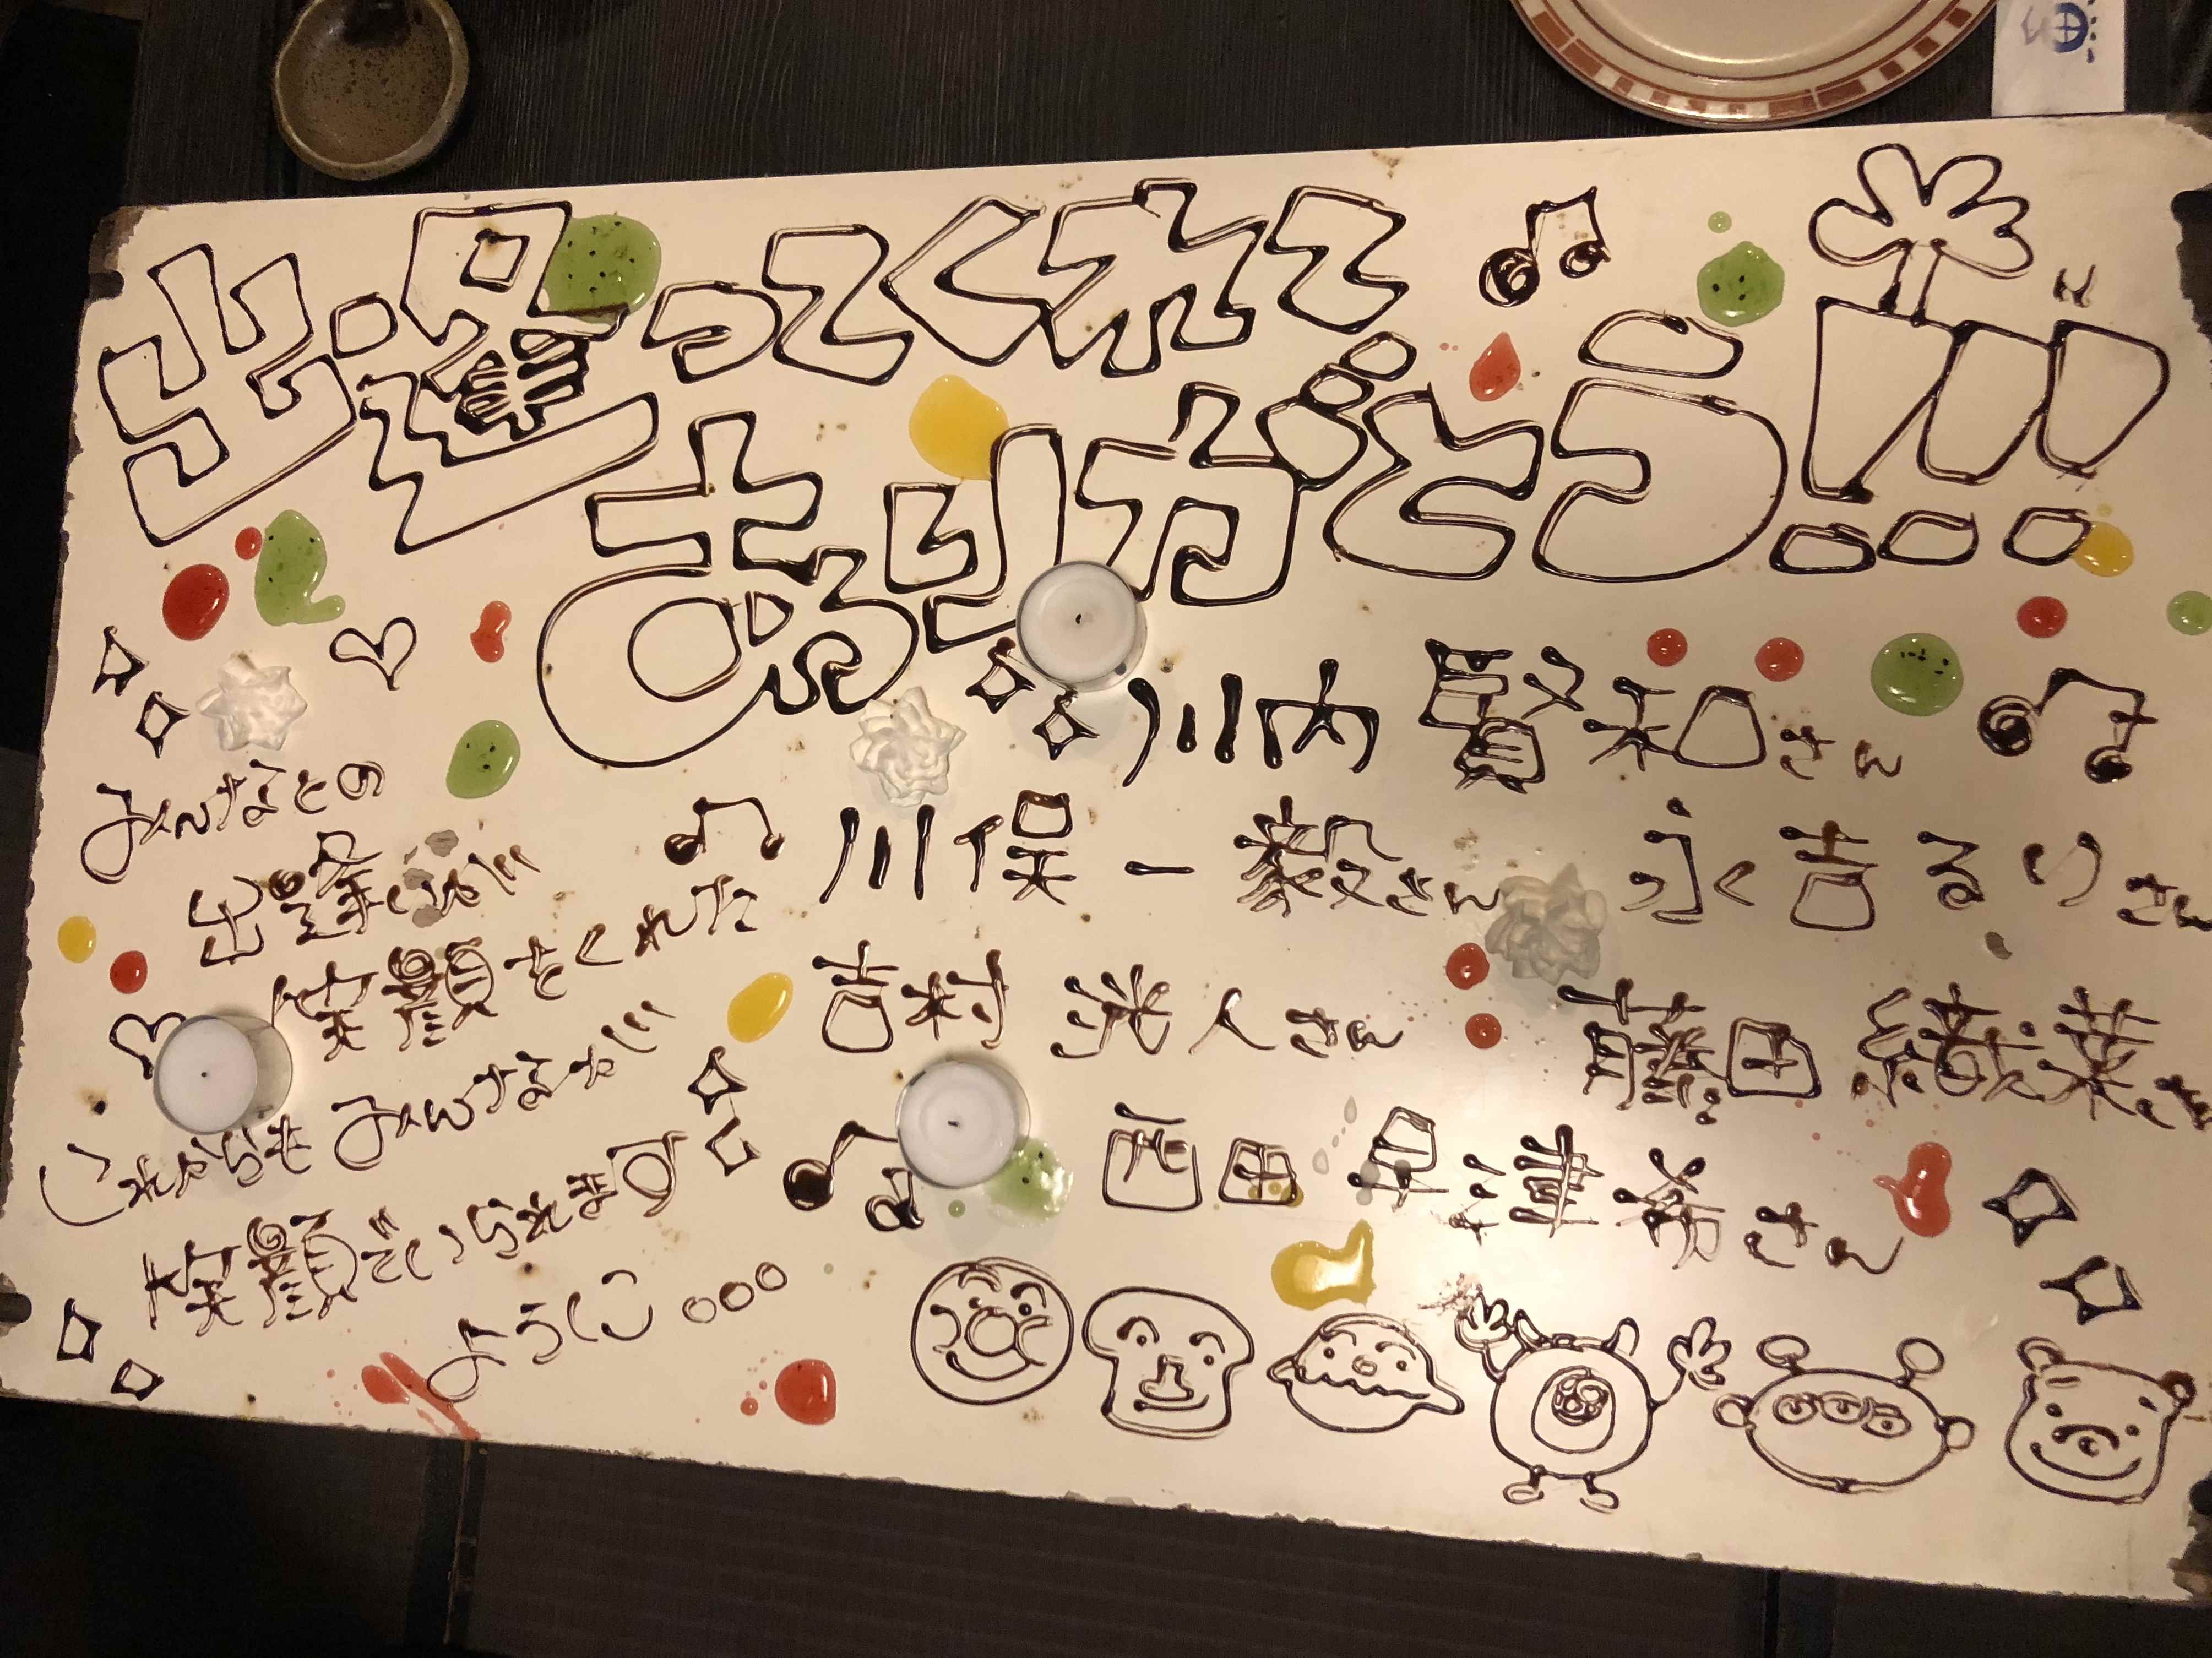 出逢ってくれて
ありがとう!!!
川内 賢和さん
川保 一毅さん
永吉 るりさん
吉村 洸人さん
藤田 織菜さ
西田 早津希さん
みんなとの
出逢いが
笑顔をくれた
これからも みんなが
笑顔でいられます
ように